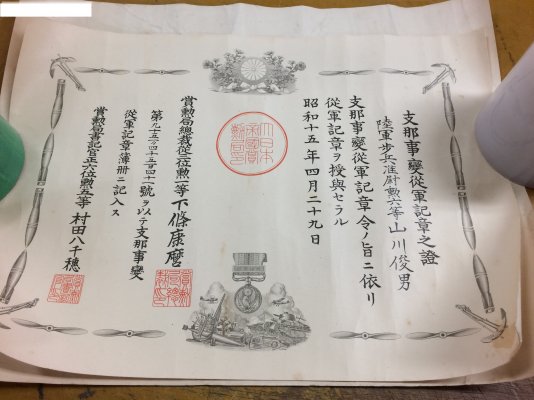 支那事變從軍記章之證
陸軍歩兵准尉勲六等山川俊男
支那事變從軍記章令ノ旨ニ依リ
從軍記章ヲ授與セラル
昭和十五年四月二十九日
大日本帝國賞勲局印
賞勲局總裁從三位勲一等下條康麿
第九十五万四千五百四十一號ヲ以テ支那事變
從軍記章簿冊ニ記入ス
賞勲局書記官正六位勲五等村田八千穂